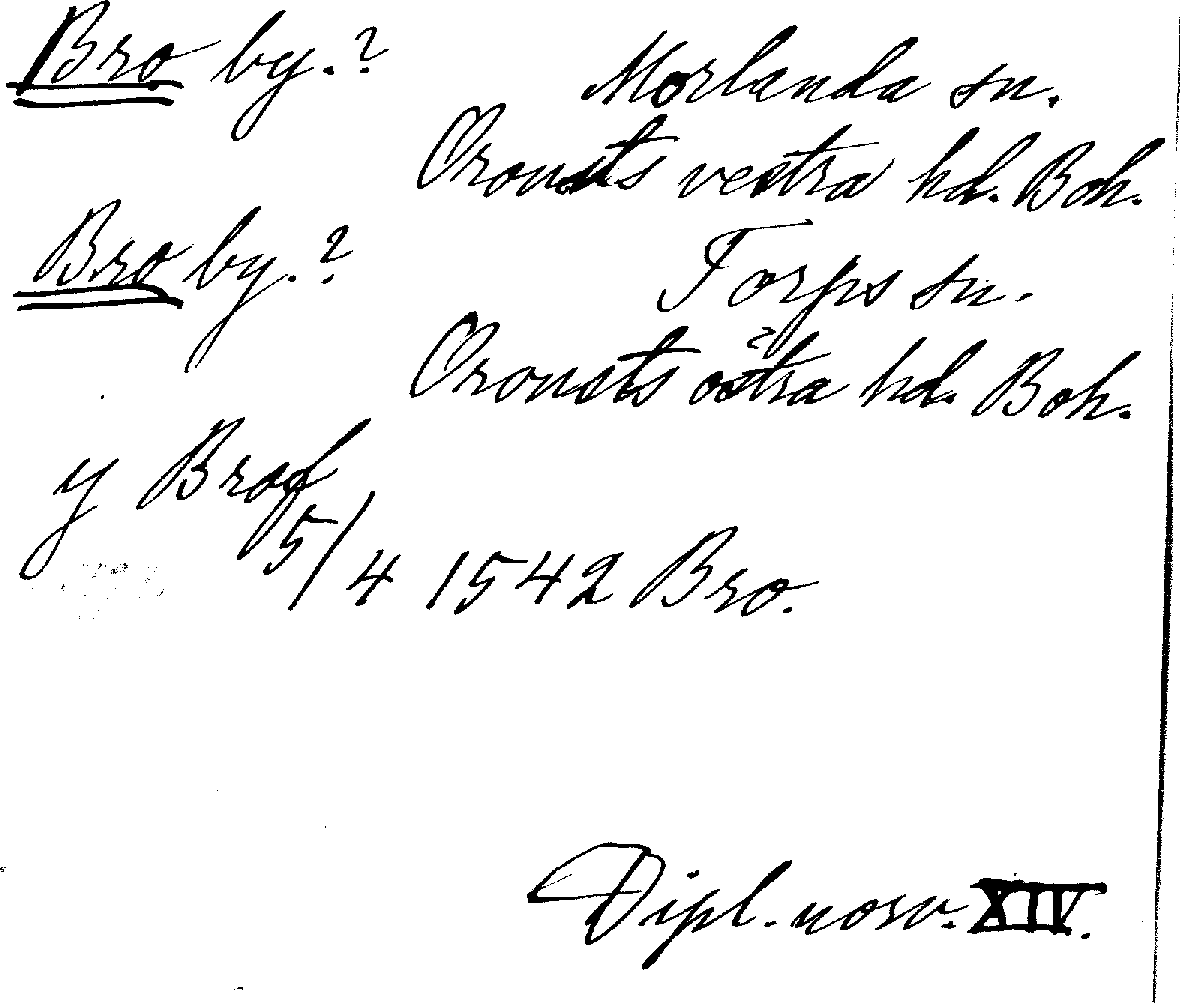 Bro by.?
Morlanda sn.
Orousts vestra hd. Boh.
Bro by.?
Torps sn.
Orousts östra hd. Boh.
y Brof
5/4 1542 Bro.
Dipl. norv. XIV.